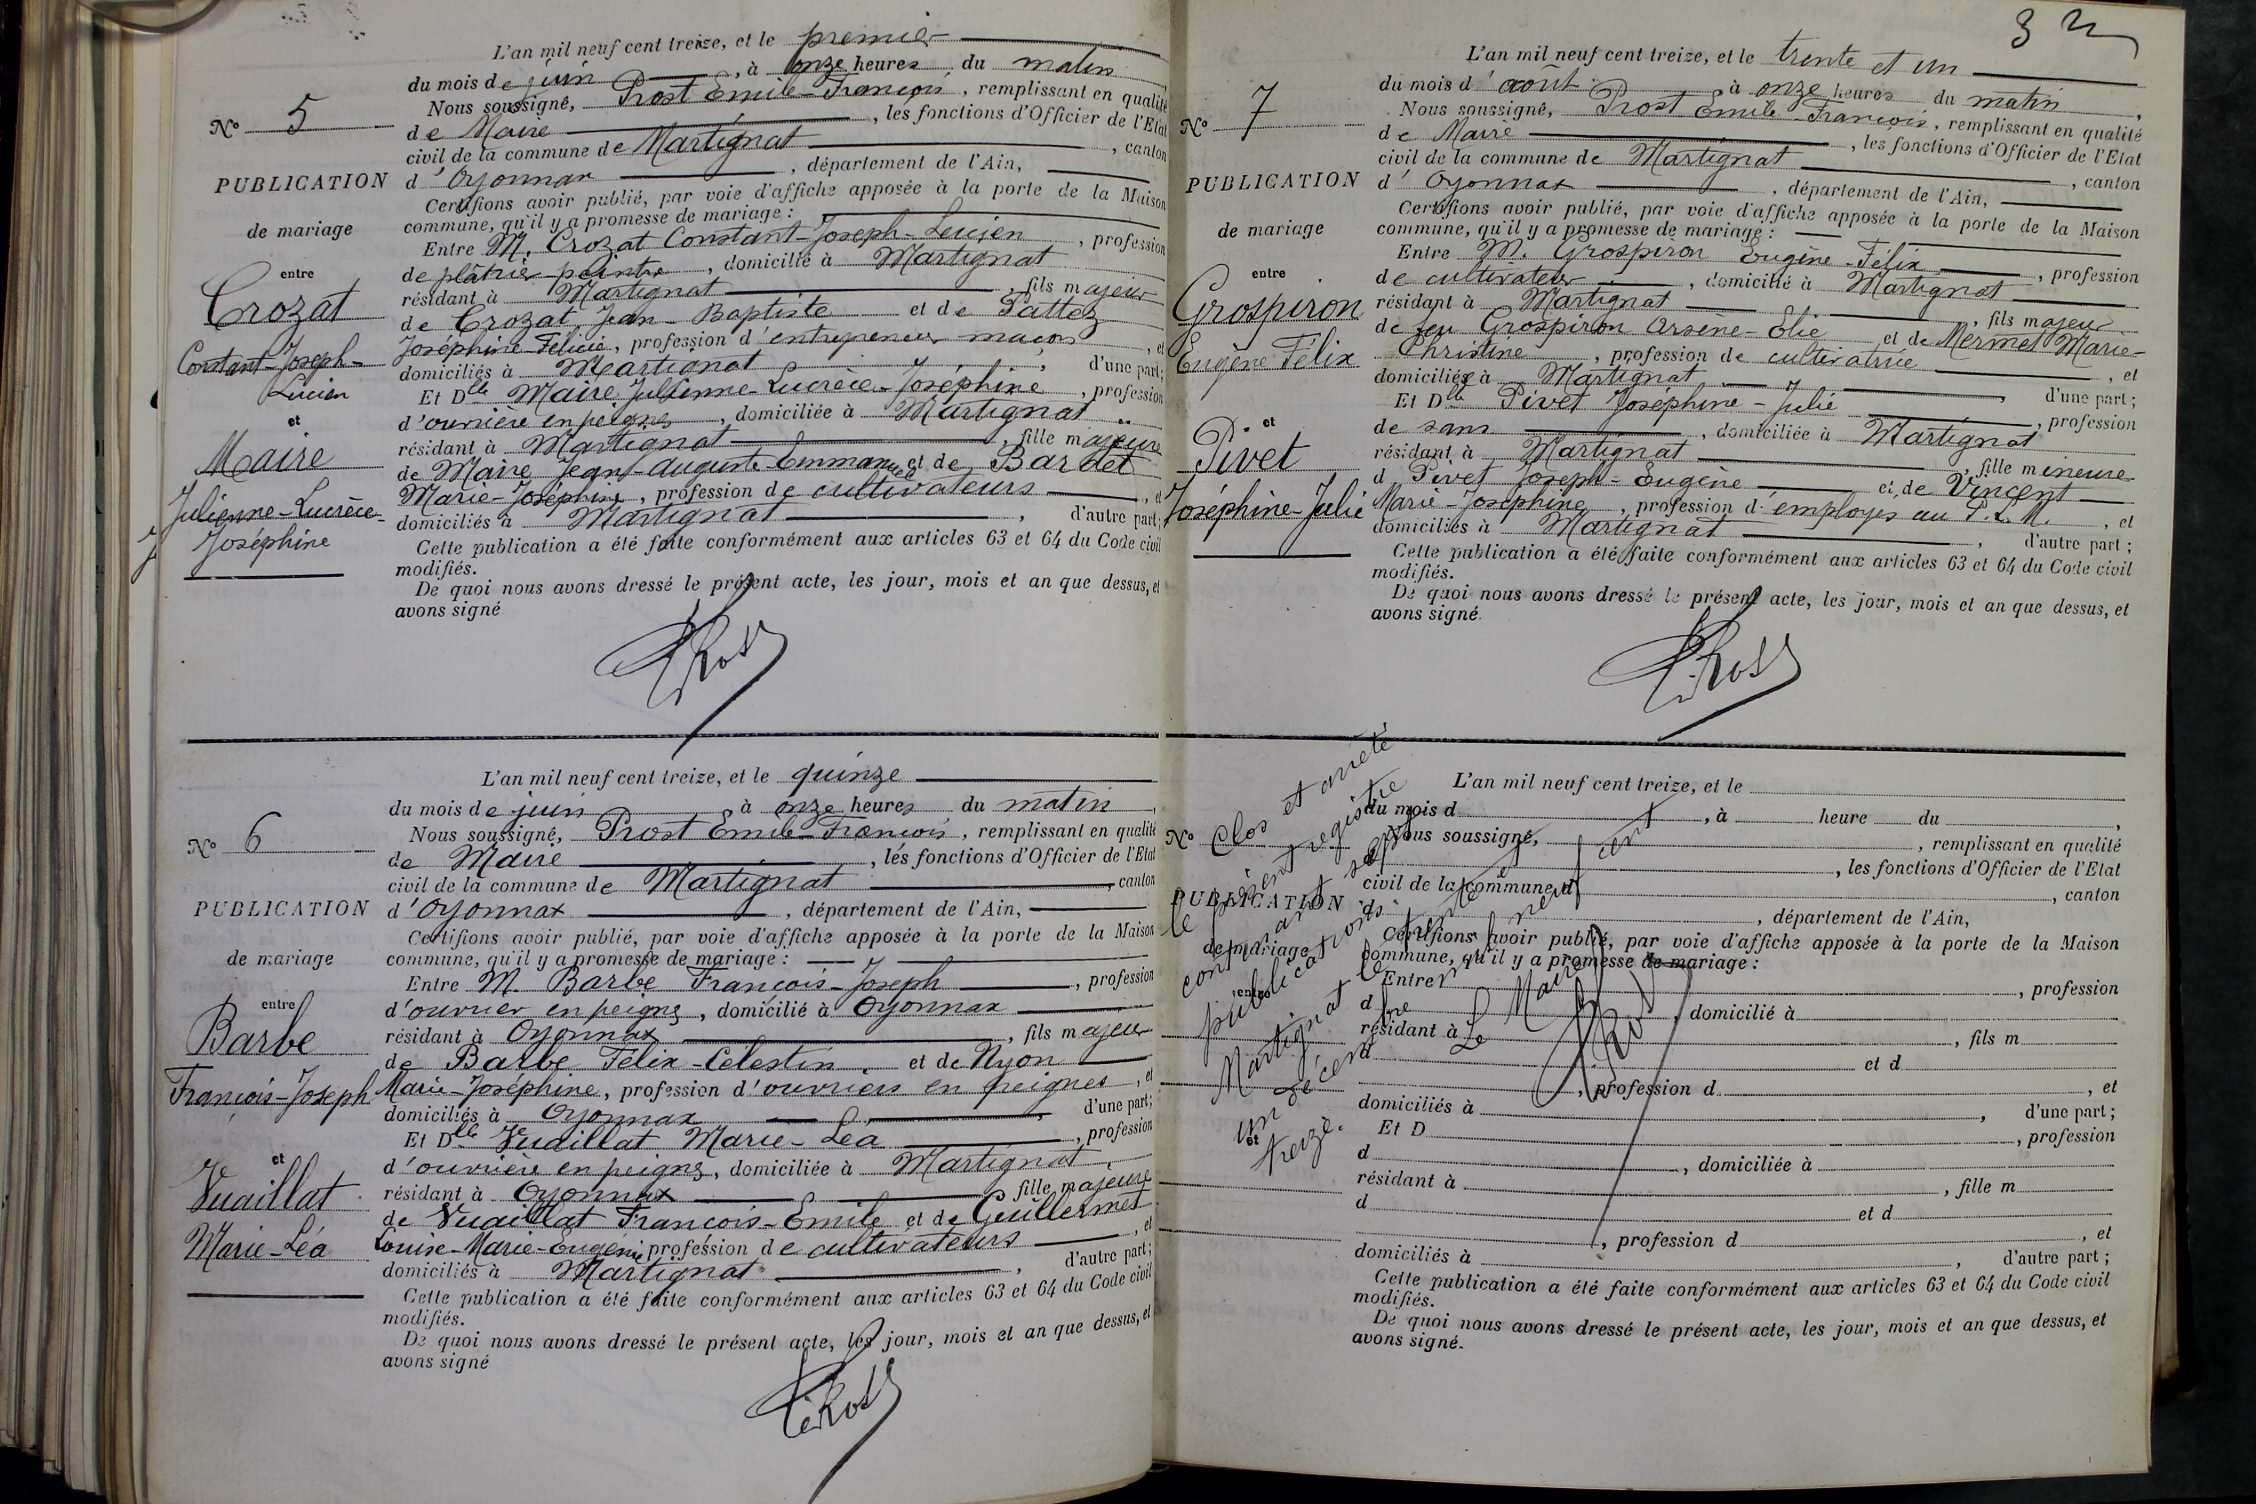 L'an mil neuf cent treize, et le premier
du mois de juin, à onze heures du matin
Nous soussigné, Prost Emile-François, remplissant en qualité
de Maire, les fonctions d'Officier de l'Etat
civil de la commune de Martignat, canton
d'Oyonnax, département de l'Ain,
Certifions avoir publié, par voie d'affiche apposée à la porte de la Maison
commune, qu'il y a promesse de mariage :
Entre M. Crozat Constant-Joseph-Lucien, profession
de plâtrier-peintre, domicilié à Martignat
résidant à Martignat, fils majeur
de Crozat Jean-Baptiste et de Pattez
Joséphine-Félicie, profession d'entrepreneur maçon, et
domiciliés à Martignat, d'une part;
Et Dlle Maire Julienne-Lucrèce-Joséphine, profession
d'ouvrière en peignes, domiciliée à Martignat
résidant à Martignat, fille majeure
de Maire Jean-Auguste-Emmanuel et de Bardet
Marie-Joséphine, profession de cultivateurs, et
domiciliés à Martignat, d'autre part;
Cette publication a été faite conformément aux articles 63 et 64 du Code civil
modifiés.
De quoi nous avons dressé le présent acte, les jour, mois et an que dessus, et
avons signé
E. Prost
No 5
PUBLICATION
de mariage
entre
Crozat
Constant-Joseph-
Lucien
et
Maire
Julienne-Lucrèce-
Joséphine
L'an mil neuf cent treize, et le quinze
du mois de juin à onze heures du matin,
Nous soussigné, Prost Emile-François, remplissant en qualité
de Maire, les fonctions d'Officier de l'Etat
civil de la commune de Martignat, canton
d'Oyonnax, département de l'Ain,
Certifions avoir publié, par voie d'affiche apposée à la porte de la Maison
commune, qu'il y a promesse de mariage :
Entre M. Barbe François-Joseph, profession
d'ouvrier en peignes, domicilié à Oyonnax
résidant à Oyonnax, fils majeur
de Barbe Félix-Célestin et de Nyon
Marie-Joséphine, profession d'ouvriers en peignes, et
domiciliés à Oyonnax, d'une part;
Et Dlle Vuaillat Marie-Léa, profession
d'ouvrière en peignes, domiciliée à Martignat,
résidant à Oyonnax fille majeure
de Vuaillat François-Emile et de Guillermet
Louise-Marie-Eugénie profession de cultivateurs, et
domiciliés à Martignat, d'autre part;
Cette publication a été faite conformément aux articles 63 et 64 du Code civil
modifiés.
De quoi nous avons dressé le présent acte, les jour, mois et an que dessus, et
avons signé
E. Prost
No 6
PUBLICATION
de mariage
entre
Barbe
François-Joseph
et
Vuaillat
Marie-Léa
3
L'an mil neuf cent treize, et le trente et un
du mois d'août à onze heures du matin,
Nous soussigné, Prost Emile-François, remplissant en qualité
de Maire, les fonctions d'Officier de l'Etat
civil de la commune de Martignat, canton
d'Oyonnax, département de l'Ain,
Certifions avoir publié, par voie d'affiche apposée à la porte de la Maison
commune, qu'il y a promesse de mariage :
Entre M. Grospiron Eugène-Félix, profession
de cultivateur, domicilié à Martignat
résidant à Martignat, fils majeur
de feu Grospiron Arsène-Elie et de Mermet Marie-
Christine, profession de cultivatrice, et
domiciliée à Martignat d'une part;
Et Dlle Pivet Joséphine-Julie, profession
de sans, domiciliée à Martignat
résidant à Martignat, fille mineure
d Pivet Joseph-Eugène et de Vincent
Marie-Joséphine, profession d'employés au P.L.M., et
domiciliés à Martignat, d'autre part;
Cette publication a été faite conformément aux articles 63 et 64 du Code civil
modifiés.
De quoi nous avons dressé le présent acte, les jour, mois et an que dessus, et
avons signé.
E. Prost
No 7
PUBLICATION
de mariage
entre
Grospiron
Eugène Félix
et
Pivet
Joséphine-Julie
L'an mil neuf cent treize, et le
du mois d, à heure du,
Nous soussigné,, remplissant en qualité
d, les fonctions d'Officier de l'Etat
civil de la commune d, canton
d, département de l'Ain,
Certifions avoir publié, par voie d'affiche apposée à la porte de la Maison
commune, qu'il y a promesse de mariage :
Entre, profession
d, domicilié à
résidant à, fils m
d et d
, profession d, et
domiciliés à, d'une part;
Et D, profession
d, domiciliée à
résidant à, fille m
d et d
, profession d, et
domiciliés à, d'autre part;
Cette publication a été faite conformément aux articles 63 et 64 du Code civil
modifiés.
De quoi nous avons dressé le présent acte, les jour, mois et an que dessus, et
avons signé.
No
PUBLICATION
de mariage
entre
et
Clos et arrêté
le présent registre
contenant sept
publications
Martignat le trente et
un décembre mil neuf cent
treize.
Le Maire
E. Prost